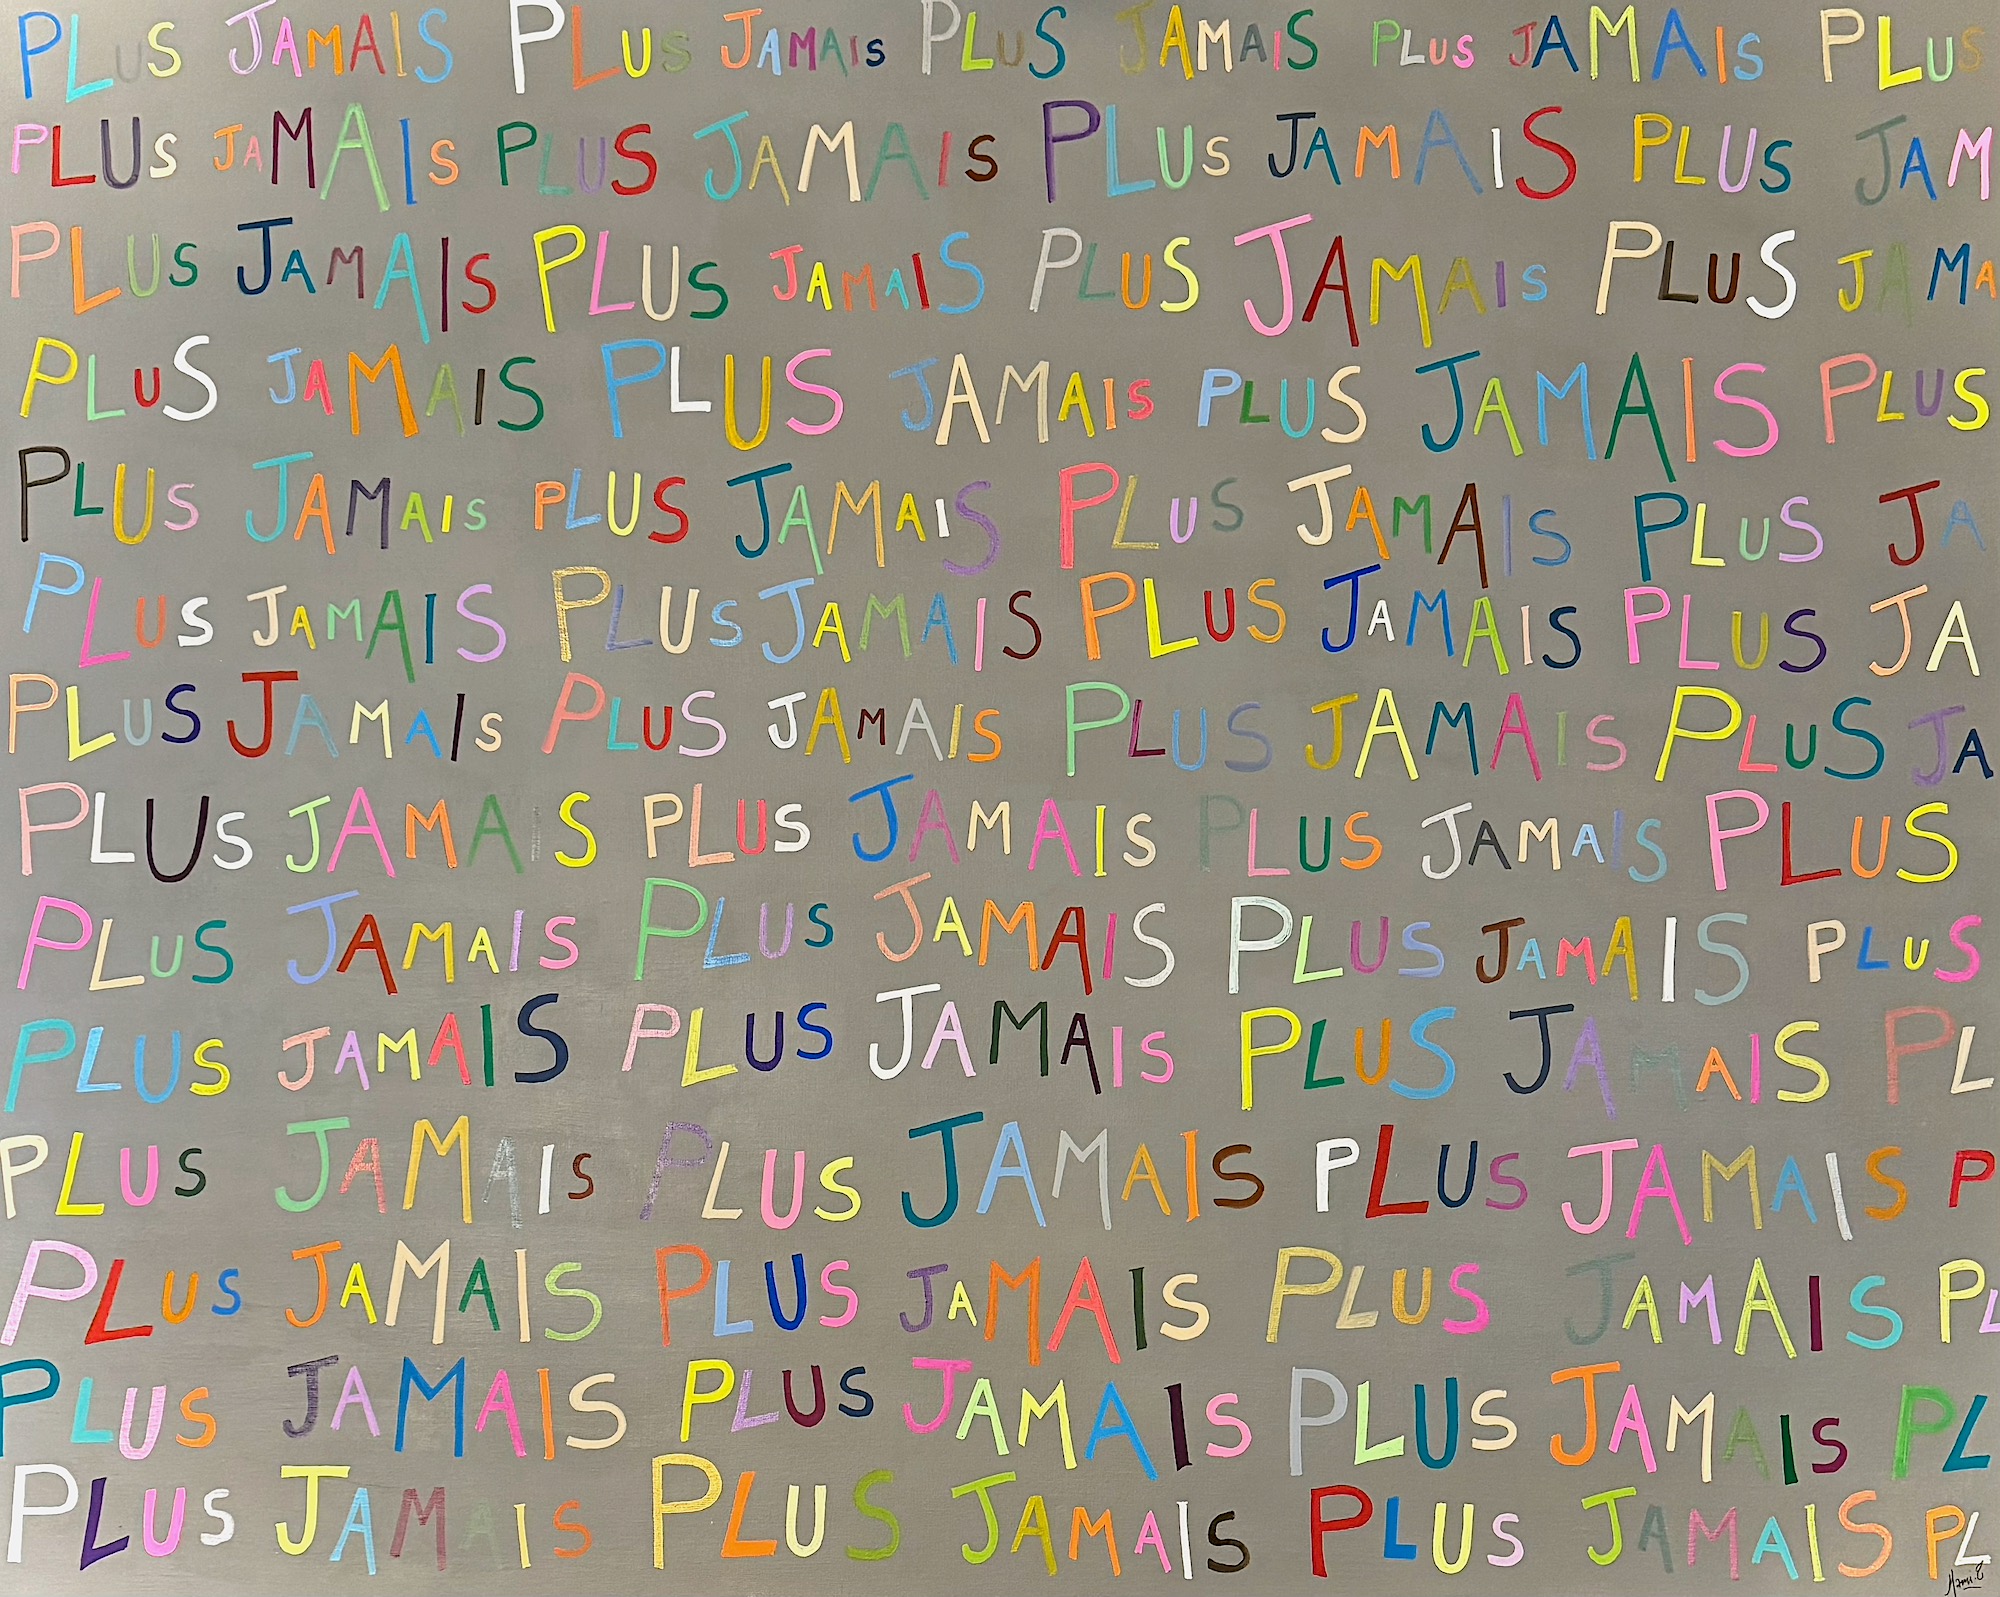 PLUS JAMAIS PLUS JAMAIS PLUS JAMAIS PLUS JAMAIS PLUS
PLUS JAMAIS PLUS JAMAIS PLUS JAMAIS PLUS JAM
PLUS JAMAIS PLUS JAMAIS PLUS JAMAIS PLUS JAMA
PLUS JAMAIS PLUS JAMAIS PLUS JAMAIS PLUS
PLUS JAMAIS PLUS JAMAIS PLUS JAMAIS PLUS JA
PLUS JAMAIS PLUS JAMAIS PLUS JAMAIS PLUS JA
PLUS JAMAIS PLUS JAMAIS PLUS JAMAIS PLUS JA
PLUS JAMAIS PLUS JAMAIS PLUS JAMAIS PLUS
PLUS JAMAIS PLUS JAMAIS PLUS JAMAIS PLUS
PLUS JAMAIS PLUS JAMAIS PLUS JAMAIS PL
PLUS JAMAIS PLUS JAMAIS PLUS JAMAIS P
PLUS JAMAIS PLUS JAMAIS PLUS JAMAIS PL
PLUS JAMAIS PLUS JAMAIS PLUS JAMAIS PL
PLUS JAMAIS PLUS JAMAIS PLUS JAMAIS PL